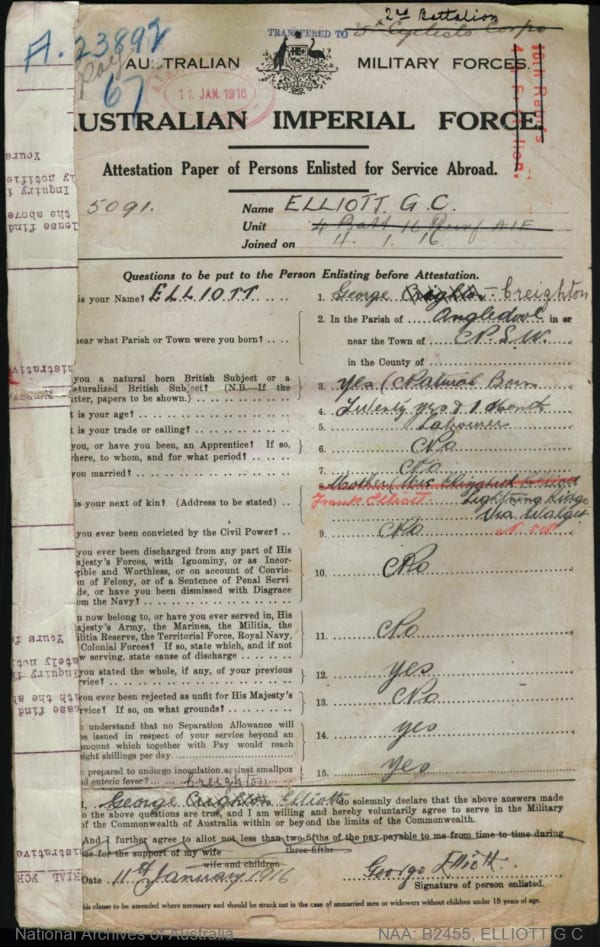 2nd Battalion
TRANSFERRED TO 5th Cyclists Corps
A.23892
Pay
67
AUSTRALIAN MILITARY FORCES.
11 JAN. 1916
16th Reinf's
4th Battalion.
AUSTRALIAN IMPERIAL FORCE.
Attestation Paper of Persons Enlisted for Service Abroad.
5091.
Name ELLIOTT G.C.
Unit 4 Batt 16 Reinf AIF
Joined on 4. 1. 16
Questions to be put to the Person Enlisting before Attestation.
is your Name? ELLIOTT
1. George Creighton
2. In the Parish of Angledool in or
near what Parish or Town were you born?
near the Town of N.S.W
in the County of
you a natural born British Subject or a
Naturalized British Subject? (N.B.—If the
latter, papers to be shown.)
3. Yes (Natural Born
t is your age?
4. Twenty yrs & 1 Month
t is your trade or calling?
5. Labourer
you, or have you been, an Apprentice? If so,
where, to whom, and for what period?
6. No
you married?
7. No
8. Mother (Mrs Elliott
Frank Elliott Lightning Ridge
is your next of kin? (Address to be stated)
Via Walgett
N.S.W.
you ever been convicted by the Civil Power?
9. No
you ever been discharged from any part of His
Majesty's Forces, with Ignominy, or as Incor-
rigible and Worthless, or on account of Convic-
on of Felony, or of a Sentence of Penal Servi
de, or have you been dismissed with Disgrace
om the Navy?
10. No
u now belong to, or have you ever served in, His
ajesty's Army, the Marines, the Militia, the
ilitia Reserve, the Territorial Force, Royal Navy,
Colonial Forces? If so, state which, and if not
w serving, state cause of discharge
11. No
you stated the whole, if any, of your previous
rvice?
12. yes
you ever been rejected as unfit for His Majesty's
rvice? If so, on what grounds?
13. No
understand that no Separation Allowance will
be issued in respect of your service beyond an
amount which together with Pay would reach
eight shillings per day.
14. yes
prepared to undergo inoculation against smallpox
nd enteric fever?
15. Yes
Creighton
I, George Elliott do solemnly declare that the above answers made
to the above questions are true, and I am willing and hereby voluntarily agree to serve in the Military
of the Commonwealth of Australia within or beyond the limits of the Commonwealth.
And I further agree to allot not less than two-fifths of the pay payable to me from time to time during
ce for the support of my wife three-fifths
wife and children
Date 11th January 1916
George Elliott.
Signature of person enlisted.
his clause to be amended where necessary and should be struck out in the case of unmarried men or widowers without children under 18 years of age.
National Archives of Australia
NAA: B2455, ELLIOTT G C